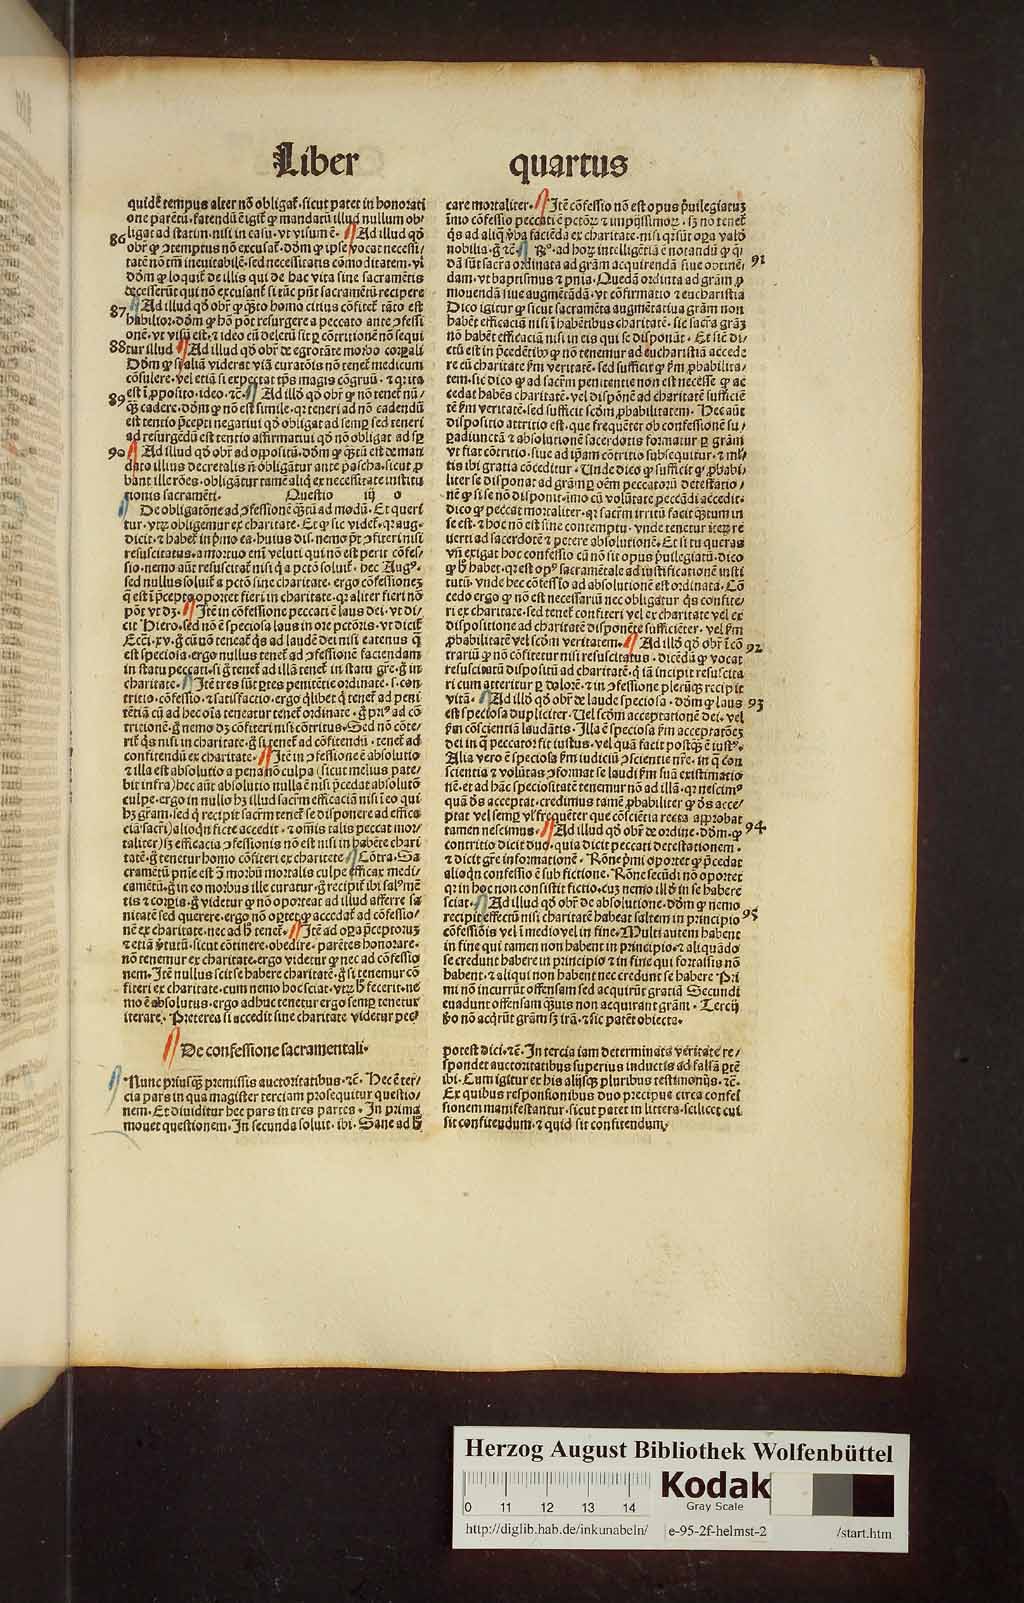 Liber quartus
quidē tempus alter nō obligat̄. sicut patet in honorati
one parētū. fatendū ē igit̄ ꝙ mandatū illud nullum ob⸗
ligat ad statim. nisi in casu. vt visum ē. Ad illud qd̄
86
obr̄ ꝙ ꝯtemptus nō excusat. dōm ꝙ ipse vocat necessi⸗
tatē nō tm̄ ineuitabilē. sed necessitatis cōmoditatem. vl
dōm ꝙ loquit̄ de illis qui de hac vita sine sacramētis
decesserūt qui nō excusant̄ si tūc pn̄t sacramētū recipere
87
Ad illud qd̄ obr̄ ꝙ quāto homo citius cōfitet̄ tāto est
habilior. dōm ꝙ hō pōt resurgere a peccato ante ꝯfessi
onē. vt visū est. & ideo cū deletū sit ꝑ cōtritionē nō sequi
88
tur illud Ad illud qd̄ obr̄ de egrotāte morbo corꝑali
Dōm ꝙ si aliā viderat viā curatōis nō tenet̄ medicum
cōsulere. vel etiā si expectat tp̄s magis cōgruū. & qꝛ ita
est ī ꝓposito. ideo. &c̄. Ad illd̄ qd̄ obr̄ ꝙ nō tenet̄ nū⸗
89
qͣꝫ cadere. dōm ꝙ nō est simile. qꝛ teneri ad nō cadendū
est tentio p̄cepti negatiui qd̄ obligat ad semꝑ sed teneri
ad resurgēdū est tentio affirmatiui qd̄ nō obligat ad sꝑ
90
Ad illud qd̄ obr̄ ad oppositū. dōm ꝙ qͣꝫtū est de man
dato illius decretalis n̄ obligātur ante pascha. sicut ꝓ
bant ille rōes. obligātur tamē aliqͥ ex necessitate institu
tionis sacramēti. Questio iij
De obligatōne ad ꝯfessionē qͣꝫtū ad modū. Et queri
tur. vtrꝫ obligemur ex charitate. Et ꝙ sic videt̄. qꝛ aug.
dicit. & habet̄ in pͥmo ca. huius dis. nemo pōt ꝯfiteri nisi
resuscitatus. a mortuo enī veluti qui nō est perit cōfes⸗
sio. nemo aūt resuscitat̄ nisi qͥ a pctō soluit̄. hec Augꝰ.
sed nullus soluit̄ a pctō sine charitate. ergo cōfessioneꝫ
q̄ est ī p̄cepto oportet fieri in charitate. qꝛ aliter fieri nō
pōt vt dꝫ. Itē in cōfessione peccati ē laus dei. vt di⸗
cit Hiero. sed nō ē speciosa laus in ore pctōris. vt dicit̄
Ecci. xv. g̊ cū nō teneat̄ qͥs ad laudē dei nisi eatenus q̄
est speciosa. ergo nullus tenet̄ ad ꝯfessionē faciendam
in statu peccati. si g̊ tenet̄ ad illā tenet̄ in statu gr̄e. g̊ in
charitate. Itē tres sūt ꝑtes penitētie ordinate. s. con⸗
tritio. cōfessio. & satisfactio. ergo qͥlibet qͥ tenet̄ ad peni
tētiā cū ad hec oīa teneatur tenet̄ ordinate. g̊ pͥꝰ ad cō
tritionē. g̊ nemo dꝫ cōfiteri nisi cōtritus. Sed nō cōte⸗
rit̄ qͥs nisi in charitate. g̊ si tenet̄ ad cōfitendū. tenet̄ ad
confitendū ex charitate. Itē in ꝯfessione ē absolutio
& illa est absolutio a pena nō culpa (sicut melius pate⸗
bit infra) hec aūt absolutio nulla ē nisi p̄cedat absolutō
culpe. ergo in nullo hꝫ illud sacrm̄ efficaciā nisi ī eo qui
hꝫ gram. sed qͥ recipit sacrm̄ tenet̄ se disponere ad effica
ciā sacri) alioqn̄ ficte accedit. & om̄is talis peccat mor⸗
taliter) sꝫ efficacia ꝯfessionis nō est nisi in habēte chari
tatē. g̊ tenetur homo cōfiteri ex charitate Cōtra. Sa
cramētū pn̄ie est ꝯͣ morbū mortalis culpe efficax medi⸗
camētū. g̊ in eo morbus ille curatur. g̊ recipit̄ ibi salꝰ mē
tis & corꝑis. g̊ videtur ꝙ nō oporteat ad illud afferre sa
nitatē sed querere. ergo nō oꝑtet ꝙ accedat ad cōfessio⸗
nē ex charitate. nec ad hͦ tenet̄. Itē ad oꝑa p̄ceptoruꝫ
& etiā v̄tutū. sicut cōtinere. obedire. parētes honorare.
nō tenemur ex charitate. ergo videtur ꝙ nec ad cōfessio
nem. Itē nullus scit se habere charitatē. g̊ si tenemur cō
fiteri ex charitate. cum nemo hoc sciat. vtrꝫ hͦ fecerit. ne
mo ē absolutus. ergo adhuc tenetur ergo semꝑ tenetur
iterare. Preterea si accedit sine charitate videtur pec⸗
care mortaliter. Itē cōfessio nō est opus p̄uilegiatuꝫ
īmo cōfessio peccati ē pctōꝝ & impijssimoꝝ. sꝫ nō tenet̄
qͥs ad aliq̄ v̄ba faciēda ex charitate. nisi qꝛ sūt oꝑa valō
nobilia. g̊ &c̄. Rͦ. ad hoꝝ intelligētiā ē notandū ꝙ qͥ
91
dā sūt sacra ordinata ad grām acquirendā siue obtinē⸗
dam. vt baptismus & pn̄ia. Quedā ordinta ad grām ꝓ
mouendā siue augmētādā. vt cōfirmatio & eucharistia
Dico igitur ꝙ sicut sacramēta augmētatiua grām non
habēt efficaciā nisi ī habētibus charitatē. sic sacra grāꝫ
nō habēt efficaciā nisi in eis qui se disponūt. Et sic di⸗
ctū est in p̄cedētibꝰ ꝙ nō tenemur ad eucharistiā accede
re cū charitate scḋm veritatē. sed sufficit ꝙ scḋm ꝓbabilita⸗
tem. sic dico ꝙ ad sacrm̄ penitentie non est necesse ꝙ ac
cedat habēs charitatē. vel dispōnē ad charitatē sufficiē
tē scḋm veritatē. sed sufficit scḋm ꝓbabilitatem. Hec aūt
dispositio attritio est. que frequēter ob confessionē su⸗
ꝑadiunctā & absolutionē sacerdotis formatur ꝑ grām
vt fiat cōtritio. siue ad ip̄am cōtritio subsequitur. & ml̄⸗
tis ibi gratia cōceditur. Unde dico ꝙ sufficit ꝙ ꝓbabi⸗
liter se disponat ad grām ꝑ oēm peccatorū detestatio⸗
nē ꝙ si se nō disponit. īmo cū volūtate peccādi accedit.
dico ꝙ peccat mortaliter. qꝛ sacrm̄ irritū facit qͣꝫtum in
se est. & hoc nō est sine contemptu. vnde tenetur iteꝝ re
uerti ad sacerdotē & petere absolutionē. Et si tu queras
vn̄ exigat hoc confessio cū nō sit opus p̄uilegiatū. dico
ꝙ hͦ habet. qꝛ est opꝰ sacramētale ad iustificationē insti
tutū. vnde hec cōfessio ad absolutionē est ordinata. Cō
cedo ergo ꝙ nō est necessariū nec obligatur qͥs confite⸗
ri ex charitate. sed tenet̄ confiteri vel ex charitate vel ex
dispositione ad charitatē disponēte sufficiēter. vel scḋm
ꝓbabilitatē vel scḋm veritatem. Ad illd̄ qd̄ obr̄ ī cō
92
trariū ꝙ nō cōfitetur nisi resuscitatus. dicēdū ꝙ vocat
resuscitatū dispositū ad charitatē. qͥ iā incipit resuscita
ri cum atteritur ꝑ dolorē. & in ꝯfessione plerūqꝫ recipit
vitā. Ad illd̄ qd̄ obr̄ de laude speciosa. dōm ꝙ laus
93
est speciosa dupliciter. Uel scḋm acceptationē dei. vel
scḋm cōscientiā laudātis. Illa ē speciosa scḋm acceptatōeꝫ
dei in q̄ peccator fit iustus. vel quā facit postqͣꝫ ē iustꝰ.
Alia vero ē speciosa scḋm iudiciū ꝯscientie nr̄e. in q̄ con
scientia & volūtas ꝯformat se laudi scḋm suā existimatio
nē. et ad hāc speciositatē tenemur nō ad illā. qꝛ nescimꝰ
quā dꝰs acceptat. credimus tamē ꝓbabiliter ꝙ dꝰs acce⸗
ptat vel semꝑ vl̓ frequēter que cōsciētia recta approbat
tamen nescimus. Ad illud qd̄ obr̄ de ordine. dōm. ꝙ
94
contritio dicit duo. quia dicit peccati detestationem.
& dicit gr̄e informationē. Rōne pͥmi oportet ꝙ p̄cedat
alioqn̄ confessio ē sub fictione. Rōne secūdi nō oportet
qꝛ in hoc non consistit fictio. cuꝫ nemo illd̄ in se habere
sciat. Ad illud qd̄ obr̄ de absolutione. dōm ꝙ nemo
95
recipit effectū nisi charitatē habeat saltem in principio
cōfessiōis vel ī medio vel in fine. Multi autem habent
in fine qui tamen non habent in principio. & aliquādo
se credunt habere in principio & in fine qui fortassis nō
habent. & aliqui non habent nec credunt se habere Pri
mi nō incurrūt offensam sed acquirūt gratiā Secundi
euadunt offensam qͣꝫuis non acquirant grām. Tercij
v̊o nō acqͥrūt grām sꝫ irā. & sic patēt obiecta.
De confessione sacramentali.
Nunc priusqͣꝫ premissis auctoritatibus. &c̄. Hec ē ter⸗
cia pars in qua magister terciam prosequitur questio⸗
nem. Et diuiditur hec pars in tres partes. In prima
mouet questionem. In secunda soluit. ibi. Sane ad hͦ
potest dici. &c̄. In tercia iam determinata veritate re⸗
spondet auctoritatibus superius inductis ad falsā ꝑtē
ibi. Cum igitur ex his alijsqꝫ pluribus testimonijs. &c̄.
Ex quibus responsionibus duo precipue circa confes
sionem manifestantur. sicut patet in littera. scilicet cui
sit confitendum. & quid sit confitendum.
Herzog August Bibliothek Wolfenbüttel
0 11 12 13 14
Kodak
Gray Scale
http://diglib.hab.de/inkunabeln/ e-95-2f-helmst-2 /start.htm